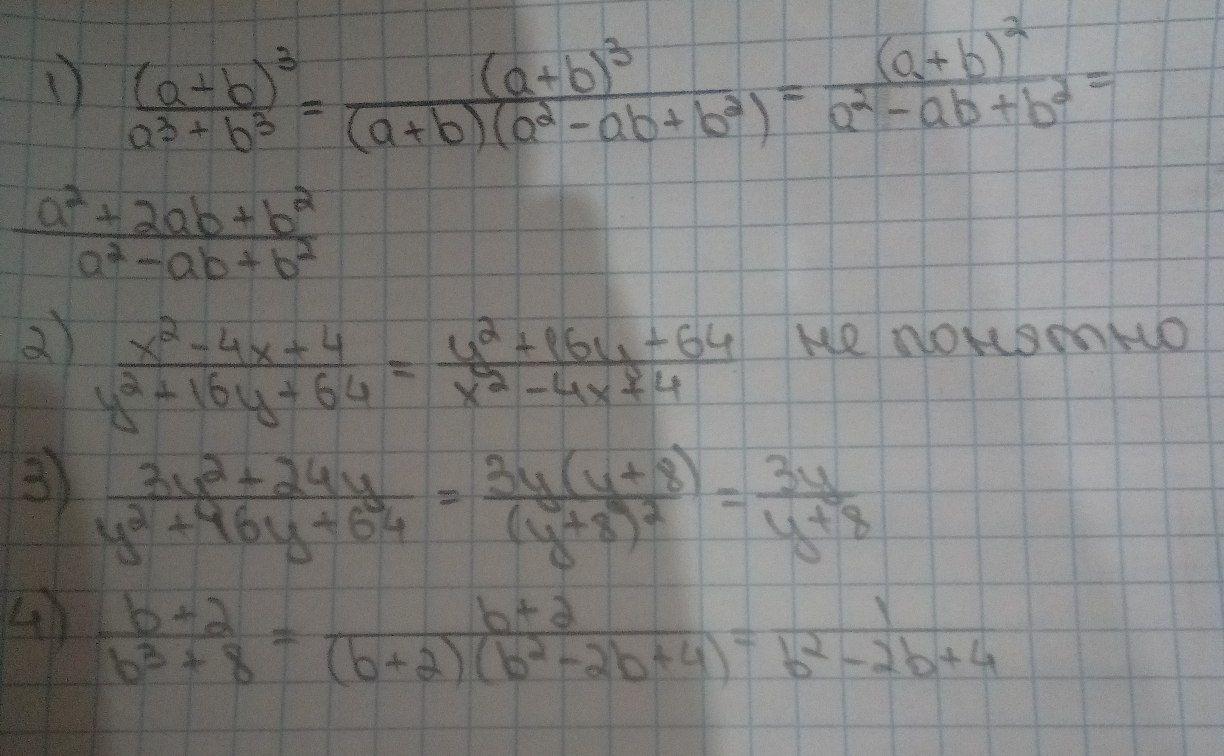 1) (a+b)³/(a³+b³) = (a+b)³/((a+b)(a²-ab+b²)) = (a+b)²/(a²-ab+b²) =
(a²+2ab+b²)/(a²-ab+b²)
2) (x²-4x+4)/(y²+16y+64) = (y²+16y+64)/(x²-4x+4) не понятно
3) (3y²+24y)/(y²+16y+64) = 3y(y+8)/(y+8)² = 3y/(y+8)
4) (b+2)/(b³+8) = (b+2)/((b+2)(b²-2b+4)) = 1/(b²-2b+4)